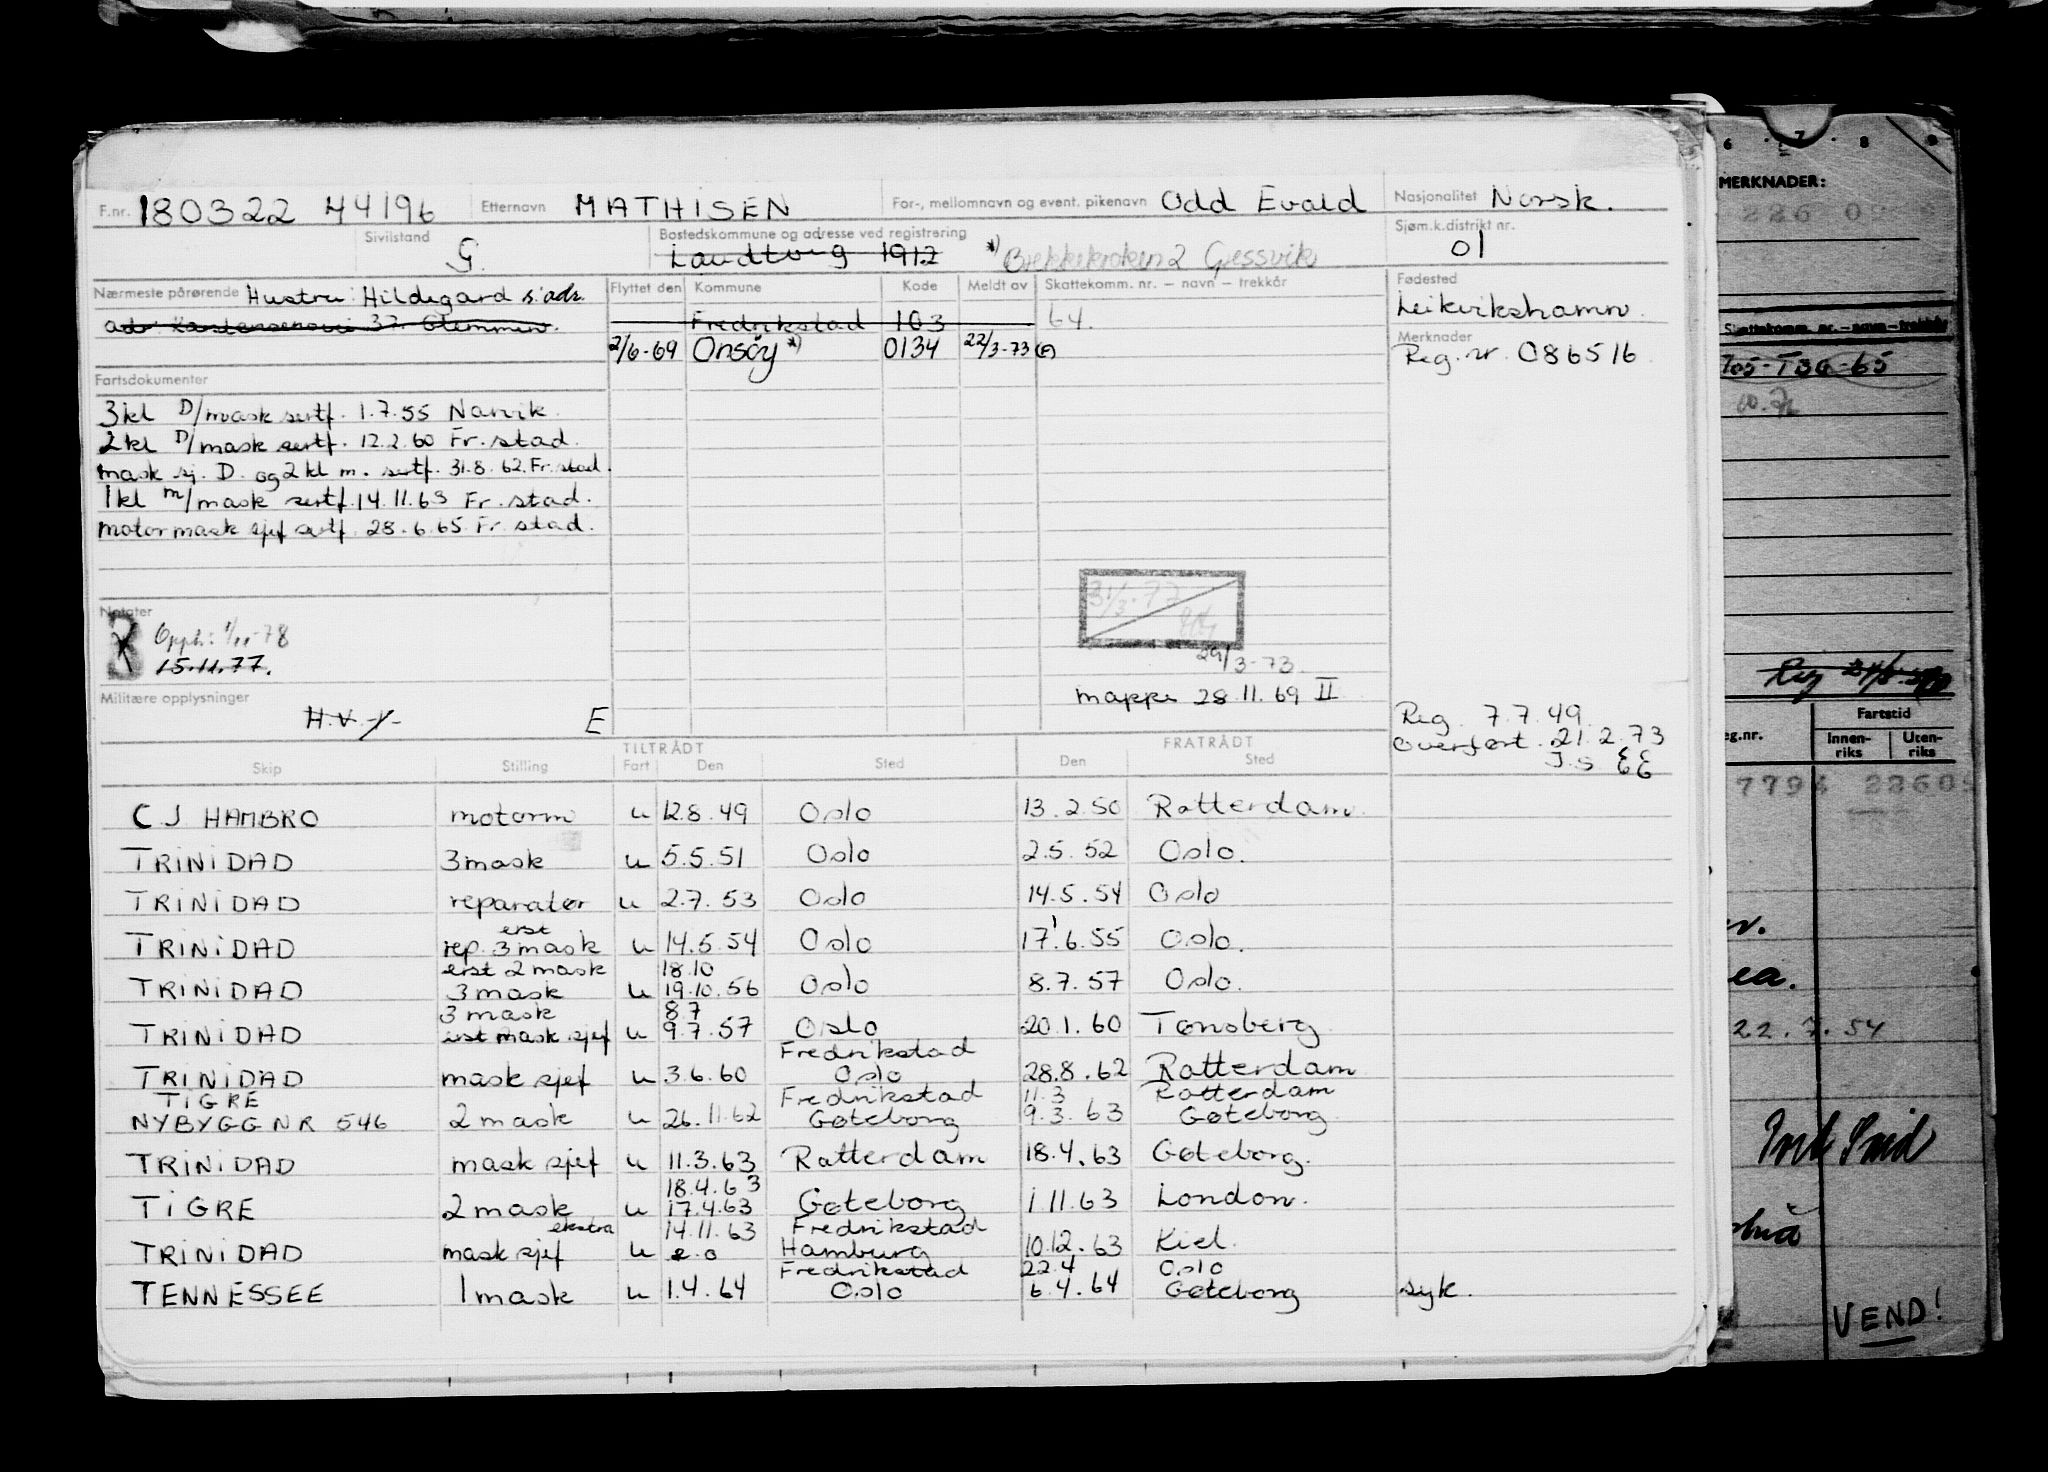 F.nr. 180322 44196 Etternavn MATHISEN For-, mellomnavn og event. pikenavn Odd Evald Nasjonalitet Norsk.
Sivilstand G. Bostedskommune og adresse ved registrering 1912 *) Gressvik Sjøm.k.distrikt nr. 01
Nærmeste pårørende Hustru: Hildegard s. adr. Flyttet den Kommune Kode Meldt av Skattekomm. nr. – navn – trekkår Fødested
adr 37 Glemmen. Fredrikstad 103 64. Leikvikshamn.
2/6-69 Onsøy *) 0134 22/3-73 Merknader
Reg. nr. 086516
Fartsdokumenter
3kl D/mask sertf. 1.7.55 Narvik.
2kl D/mask sertf. 12.2.60 Fr.stad.
mask sj. D. og 2kl m. sertf. 31.8.62. Fr.stad.
1kl m/mask sertf. 14.11.63 Fr.stad.
motormask sjef sertf. 28.6.65 Fr.stad.
31/3.77
Notater
3
Opph: 1/11-78
15.11.77.
29/3-73.
mappe 28.11.69 II
Militære opplysninger
H.V. E
Reg. 7.7.49.
Overført. 21.2.73
J.S
TILTRÅDT FRATRÅDT
Skip Stilling Fart Den Sted Den Sted
C J HAMBRO motorm u 12.8.49 Oslo 13.2.50 Rotterdam.
TRINIDAD 3 mask u 5.5.51 Oslo 2.5.52 Oslo.
TRINIDAD reparatør u 2.7.53 Oslo 14.5.54 Oslo
erst
TRINIDAD rep. 3 mask u 14.5.54 Oslo 17.6.55 Oslo.
erst 2 mask 18.10
TRINIDAD 3 mask u 19.10.56 Oslo 8.7.57 Oslo.
3 mask 8.7
TRINIDAD erst mask sjef u 9.7.57 Oslo 20.1.60 Tønsberg
Fredrikstad
TRINIDAD mask sjef u 3.6.60 Oslo 28.8.62 Rotterdam
TIGRE Fredrikstad 11.3 Rotterdam
NYBYGG NR 546 2 mask u 26.11.62 Gøteborg 9.3.63 Gøteborg
TRINIDAD mask sjef u 11.3.63 Rotterdam 18.4.63 Gøteborg.
18.4.63
TIGRE 2 mask u 17.4.63 Gøteborg 1.11.63 London.
ekstra 14.11.63 Fredrikstad
TRINIDAD mask sjef u Hamburg 10.12.63 Kiel.
Fredrikstad 22.4 Oslo
TENNESSEE 1 mask u 1.4.64 Oslo 6.4.64 Gøteborg syk.
6 7 8
MERKNADER:
226 0
Skattekomm. nr. – navn – trekkår
-65
Fartstid
eg.nr. Innen-riks Uten-riks
22.7.54
VEND!